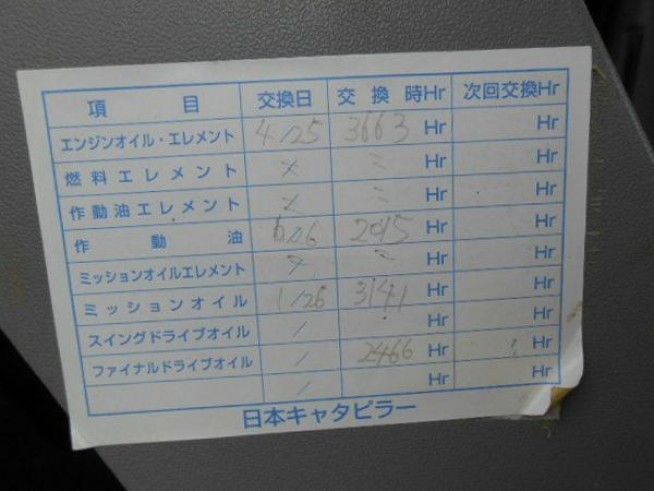 項 目 交換日 交換時Hr 次回交換Hr
エンジンオイル・エレメント 4/25 3663 Hr Hr
燃料エレメント 〃 〃 Hr Hr
作動油エレメント 〃 〃 Hr Hr
作動油 Hr Hr
ミッションオイルエレメント 〃 〃 Hr Hr
ミッションオイル 1/26 3141 Hr Hr
スイングドライブオイル / Hr Hr
ファイナルドライブオイル / 2466 Hr Hr
/ Hr Hr
日本キャタピラー